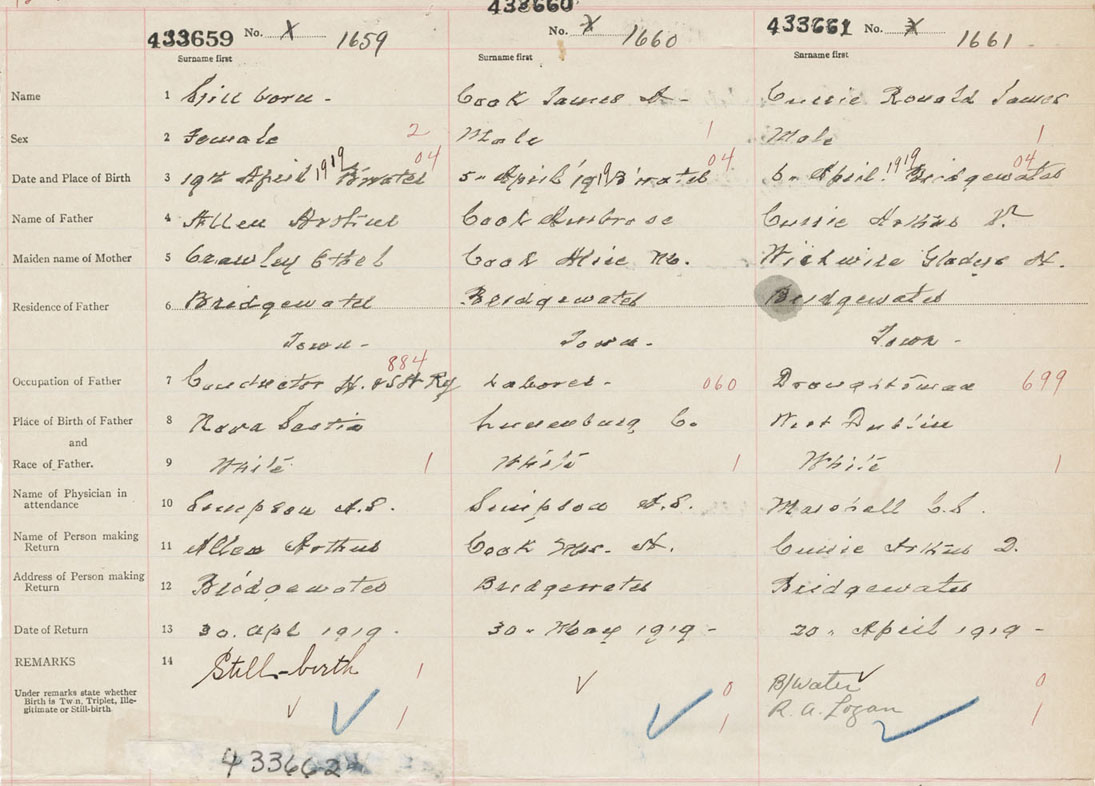 433660
433659 No. X 1659 No. X 1660 433661 No. X 1661
Surname first Surname first Surname first
Name 1 Still born - Cook James A - Currie Ronald James
Sex 2 Female 2 Male 1 Male 1
Date and Place of Birth 3 19th April 1919 B'water 04 5 " April 1919 B'water 04 6 " April 1919 Bridgewater 04
Name of Father 4 Allen Arthur Cook Ambrose Currie Arthur
Maiden name of Mother 5 Crawley Ethel Cook Alice M. Wickwire Gladys H.
Residence of Father 6 Bridgewater Bridgewater Bridgewater
Town - Town - Town -
Occupation of Father 7 Conductor H. & S.W Ry 884 Laborer - 060 Draughtsman 699
Place of Birth of Father 8 Nova Scotia Lunenburg Co. West Dublin
and
Race of Father. 9 White 1 White 1 White 1
Name of Physician in
attendance 10 Simpson A.S. Simpson A.S. Marshall C.S.
Name of Person making
Return 11 Allen Arthur Cook Mrs. A. Currie Arthur D.
Address of Person making
Return 12 Bridgewater Bridgewater Bridgewater
Date of Return 13 30. Apl 1919. 30 " May 1919 - 20 " April 1919 -
REMARKS 14 Still-birth 1
Under remarks state whether
Birth is Twin, Triplet, Ille-
gitimate or Still-birth. 1 0 1 B/Water 0
R. A. Logan 1
433662